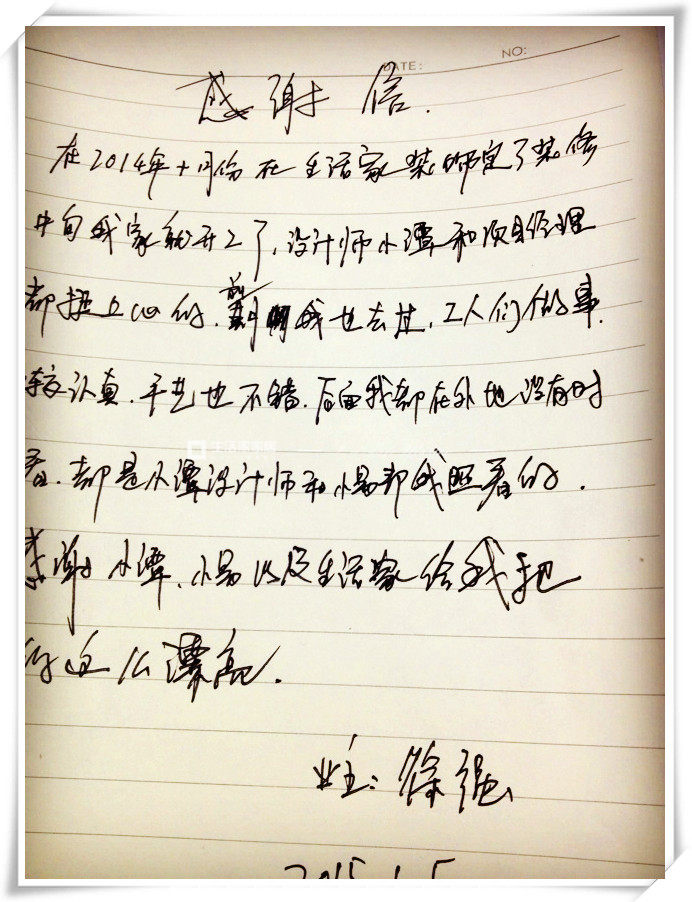 NO:
DATE:
感谢信.
在2014年十月份在生活家装饰定了装修
中旬我家就开工了,设计师小谭和项目经理
都挺上心的.前我也去过,工人们做事.
较认真.手艺也不错.后面我都在外地没有时
看.都是小谭设计师和小易帮我照看的.
感谢小谭、小易以及生活家给我把
的这么漂亮.
业主:徐强
2015.1.5